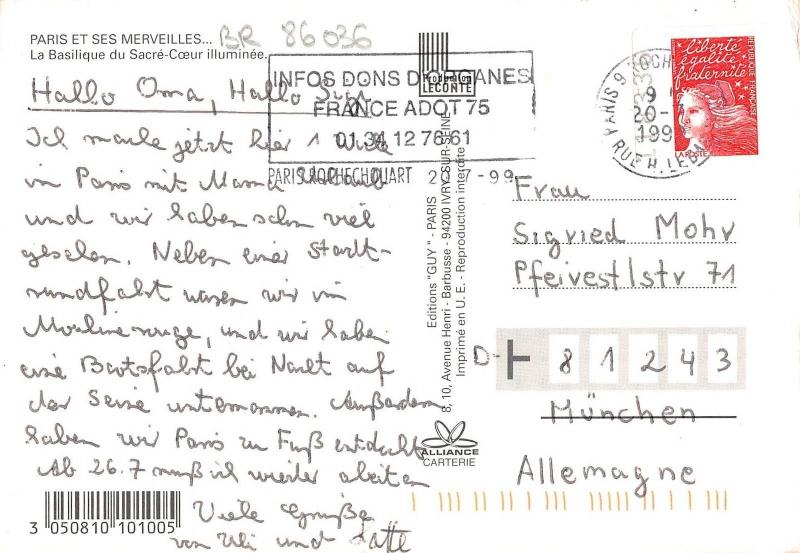 PARIS ET SES MERVEILLES...
La Basilique du Sacré-Cœur illuminée.
BR 86036
INFOS DONS D'ORGANES
FRANCE ADOT 75
01 34 12 76 61
PARIS ROCHECHOUART 20-7-99
Production
LECONTE
PARIS 9
20-7
199
RUE H. LE
liberté
égalité
fraternité
REPUBLIQUE FRANÇAISE
LA POSTE
Hallo Oma, Hallo
Ich mache jetzt hier 1 Woche
in Paris mit Mama Urlaub
und wir haben schon viel
gesehen. Neben einer Stadt-
rundfahrt waren wir im
Moulin rouge, und wir haben
eine Bootsfahrt bei Nacht auf
der Seine unternommen. Außerdem
haben wir Paris zu Fuß entdeckt.
Ab 26.7 muß ich wieder arbeiten
Viele Grüße
von Uli und
Editions "GUY" - PARIS
8, 10, Avenue Henri - Barbusse - 94200 IVRY-SUR-SEINE
Imprimé en U. E. - Reproduction interdite
ALLIANCE
CARTERIE
Frau
Sigried Mohr
Pfeivestlstr 71
D- 81243
München
Allemagne
3 050810 101005